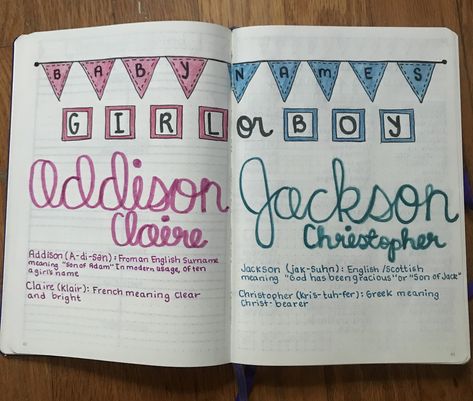 BABY NAMES
GIRL or BOY
Addison
Claire
Addison (A-di-sən): Froman English Surname
meaning "son of Adam" In modern usage, often
a girl's name
Claire (klair): French meaning clear
and bright
Jackson
Christopher
Jackson (jak-suhn): English/Scottish
meaning "God has been gracious" or "Son of Jack"
Christopher (kris-tuh-fer): Greek meaning
Christ-bearer